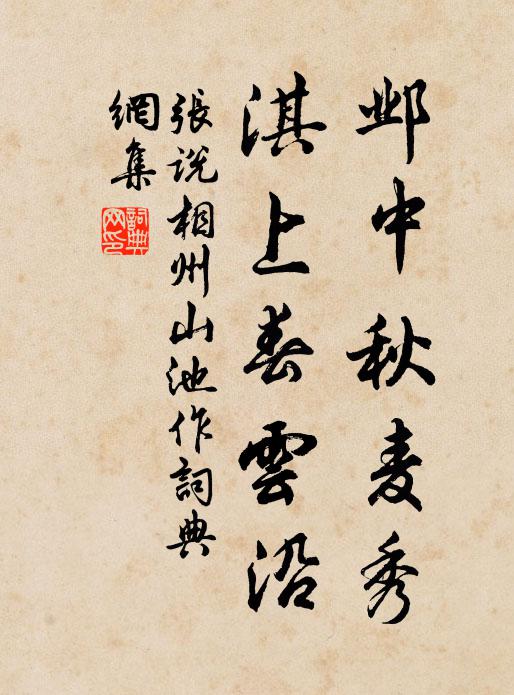 邺中秋麦秀
淇上春雲沿
張说相州山池作詞典
網集
詞典網印